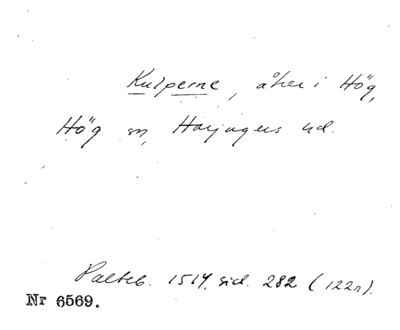 Kulperne, åker i Hög,
Hög sn, Harjagers hd.
Palteb. 1514, sid. 282 (122r).
Nr 6569.